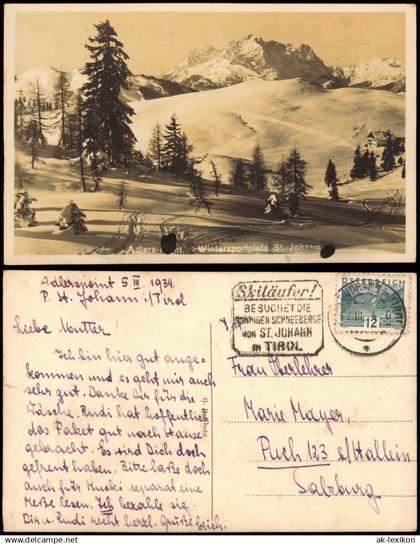 Adlers-Point. Wintersportplatz St. Johann
Adlerspoint 5. III. 1934.
P. St. Johann i/Tirol
Liebe Mutter!
Ich bin hier gut ange-
kommen und es geht mir auch
sehr gut. Danke Dir für die
Wäsche. Rudi hat hoffentlich
das Paket gut nach Hause
gebracht. Es wird Dich doch
gefreut haben. Bitte laße doch
auch für Mucki separat eine
Meße lesen. Ich bezahle sie.
Dir u. Rudi recht herzl. Grüße
Skiläufer!
BESUCHET DIE
SONNIGEN SCHNEEBERGE
VON ST. JOHANN
IN TIROL
ÖSTERREICH
12
Frau Oberlehrer
Marie Mayer,
Puch 123 o/Hallein
Salzburg
© ak-lexikon
www.ak-lexikon.de